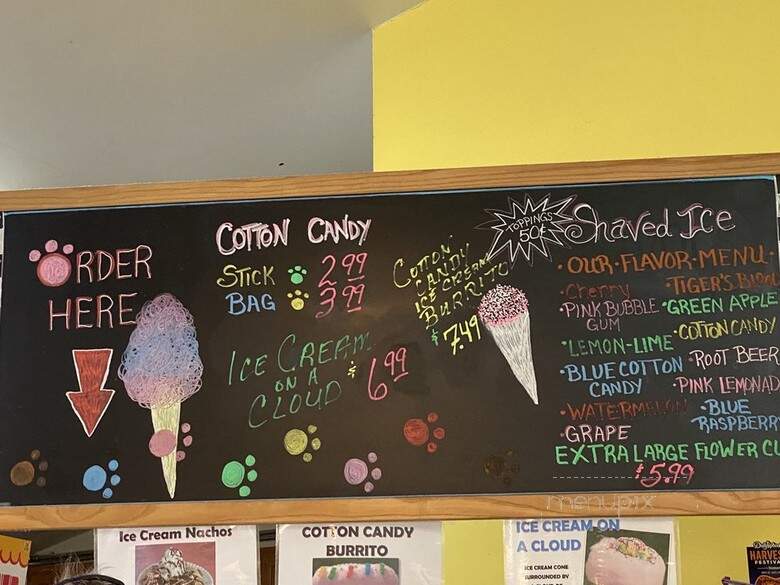 ORDER
HERE
COTTON CANDY
STICK 2 99
BAG 3 99
ICE CREAM
ON A
CLOUD $6 99
COTTON
CANDY
ICE CREAM
BURRITO
$7.49
TOPPINGS
50¢
Shaved Ice
• OUR • FLAVOR • MENU •
• Cherry • TIGER'S
• PINK BUBBLE GUM • GREEN APPLE
• LEMON-LIME • COTTON CANDY
• BLUE COTTON CANDY • ROOT BEER
• PINK
• WATERMELON • BLUE
• GRAPE
EXTRA LARGE FLOWER
$5.99
menupix
Ice Cream Nachos
COTTON CANDY
BURRITO
ICE CREAM ON
A CLOUD
ICE CREAM CONE
SURROUNDED BY